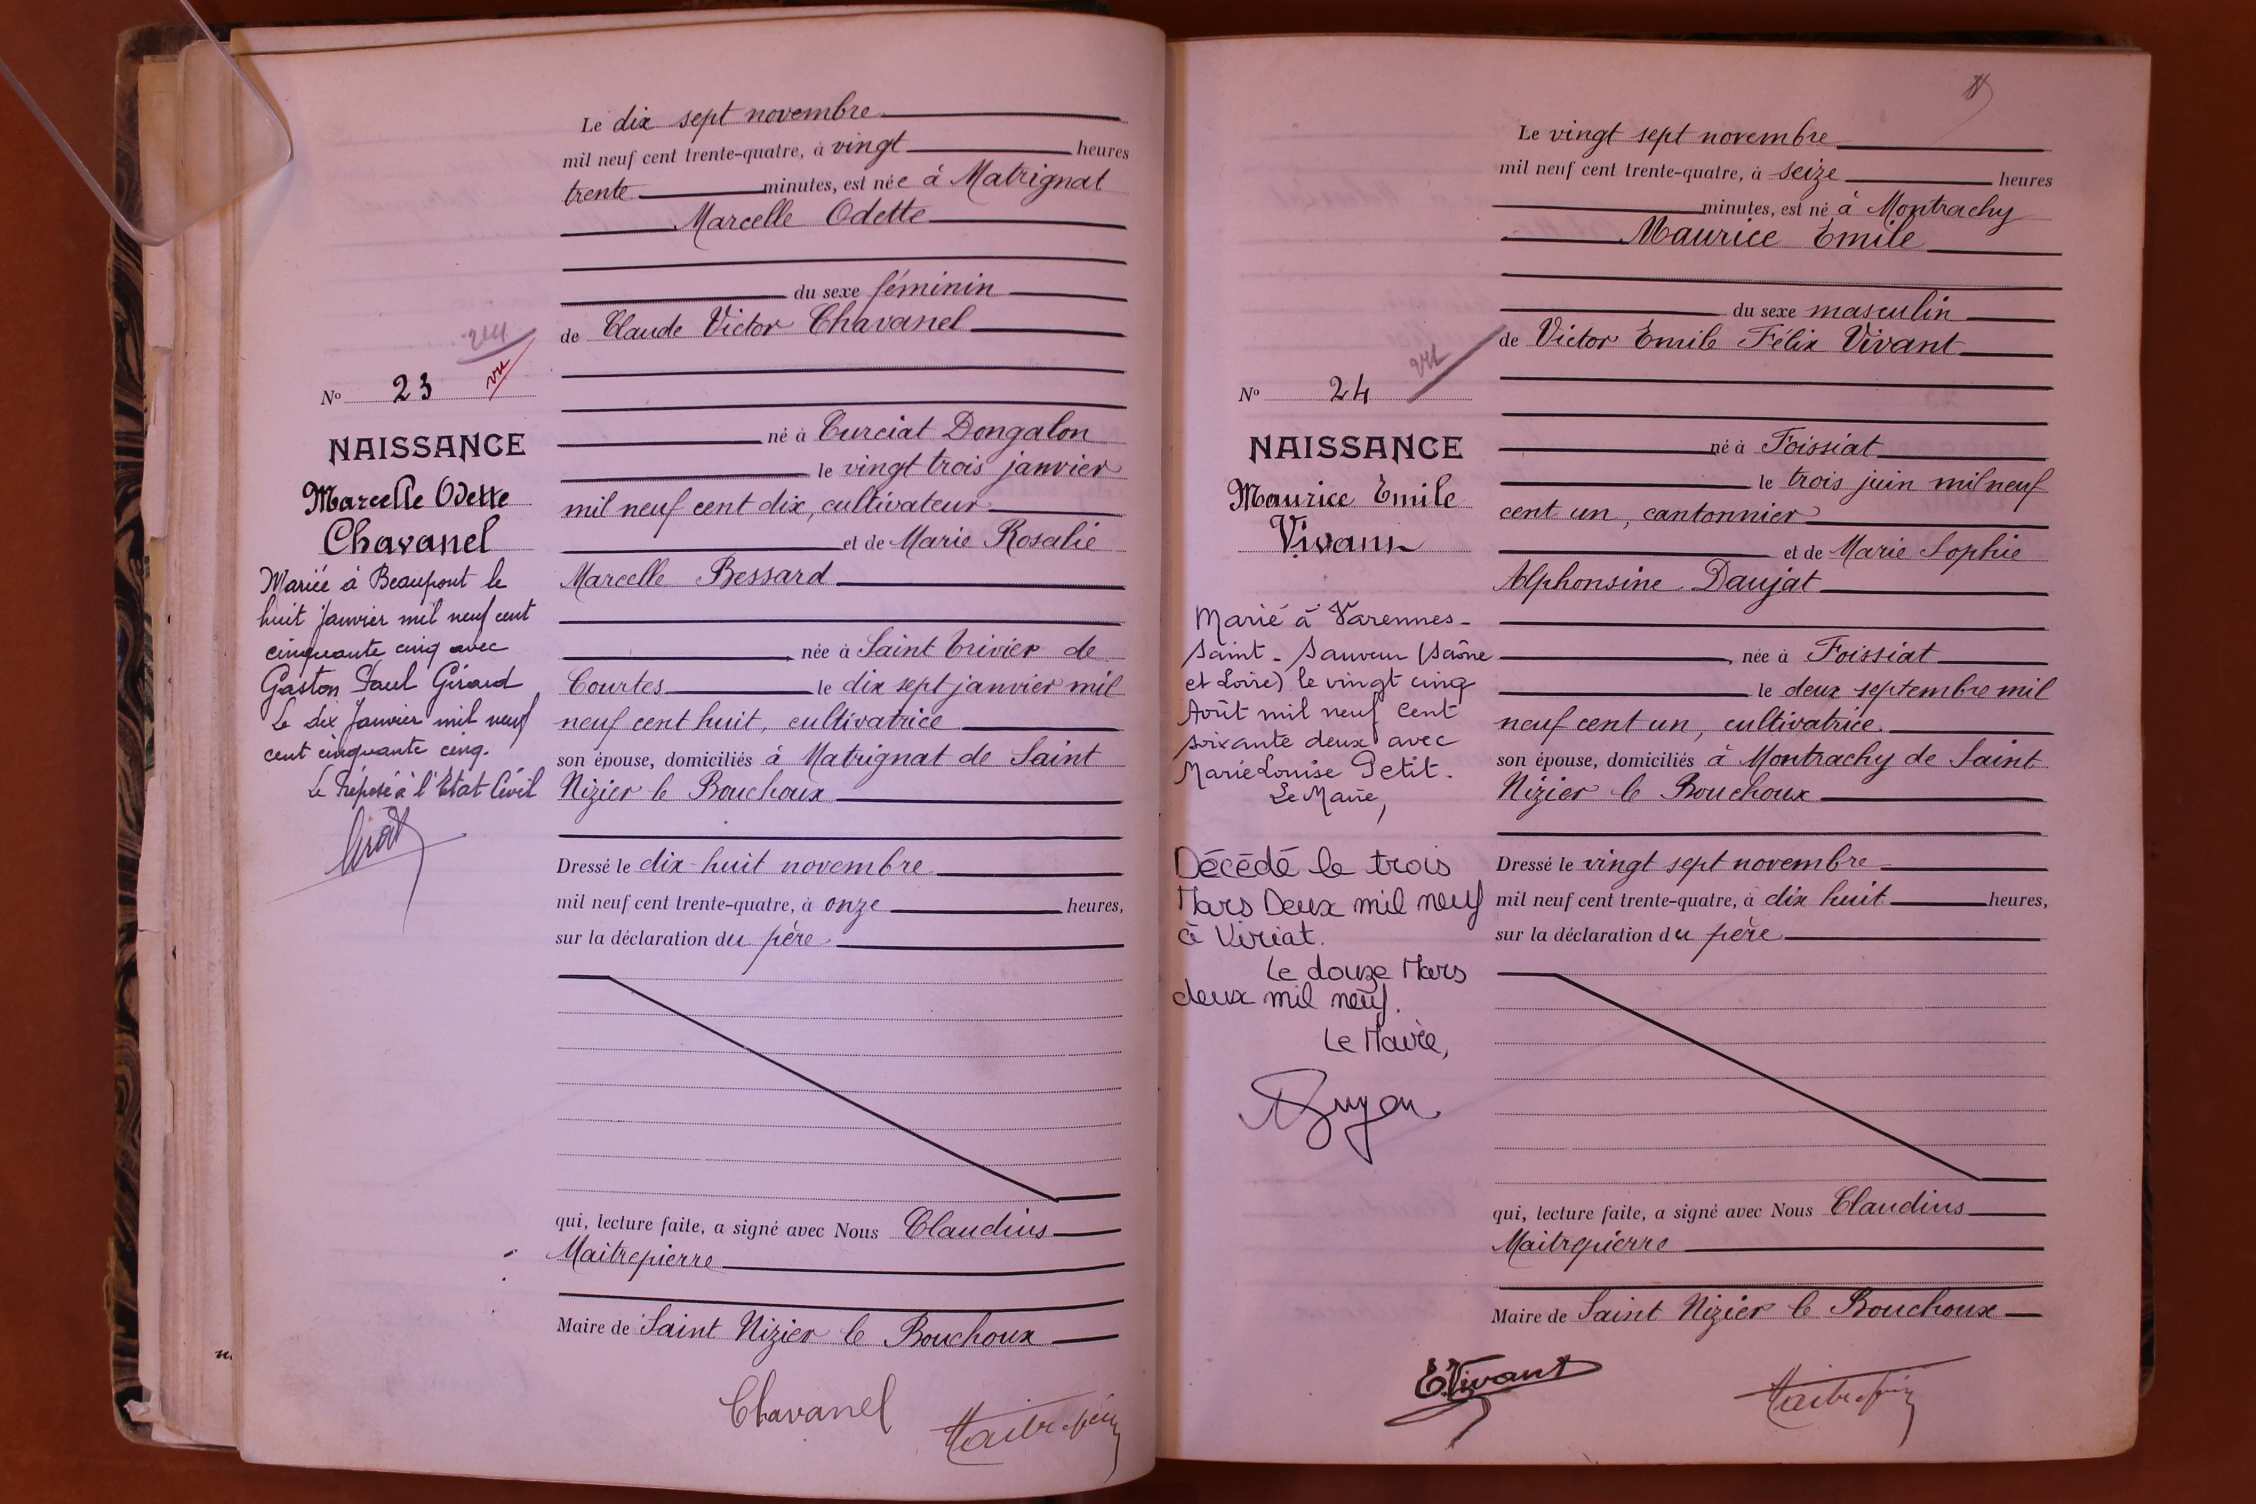 vu
vu
N° 23
NAISSANCE
Marcelle Odette
Chavanel
Mariée à Beaupont le
huit Janvier mil neuf cent
cinquante cinq avec
Gaston Paul Giraud
Le dix Janvier mil neuf
cent cinquante cinq.
Le Préposé à l'Etat Civil
Le dix sept novembre
mil neuf cent trente-quatre, à vingt heures
trente minutes, est née à Matrignat
Marcelle Odette
du sexe féminin
de Claude Victor Chavanel
né à Curciat Dongalon
le vingt trois janvier
mil neuf cent dix, cultivateur
et de Marie Rosalie
Marcelle Bessard
née à Saint Trivier de
Courtes le dix sept janvier mil
neuf cent huit, cultivatrice
son épouse, domiciliés à Matrignat de Saint
Nizier le Bouchoux
Dressé le dix-huit novembre
mil neuf cent trente-quatre, à onze heures,
sur la déclaration du père
qui, lecture faite, a signé avec Nous Claudius
Maitrepierre
Maire de Saint Nizier le Bouchoux
Chavanel
Maitrepierre
vu
N° 24
NAISSANCE
Maurice Emile
Vivant
Marié à Varennes-
Saint-Sauveur (Saône
et Loire) le vingt cinq
Août mil neuf cent
soixante deux avec
Marie Louise Petit.
Le Maire,
Décédé le trois
Mars Deux mil neuf
à Viriat.
Le douze Mars
deux mil neuf.
Le Maire,
Le vingt sept novembre
mil neuf cent trente-quatre, à seize heures
minutes, est né à Montrachy
Maurice Emile
du sexe masculin
de Victor Emile Félix Vivant
né à Foissiat
le trois juin mil neuf
cent un, cantonnier
et de Marie Sophie
Alphonsine Daujat
née à Foissiat
le deux septembre mil
neuf cent un, cultivatrice
son épouse, domiciliés à Montrachy de Saint
Nizier le Bouchoux
Dressé le vingt sept novembre
mil neuf cent trente-quatre, à dix huit heures,
sur la déclaration du père
qui, lecture faite, a signé avec Nous Claudius
Maitrepierre
Maire de Saint Nizier le Bouchoux
E. Vivant
Maitrepierre